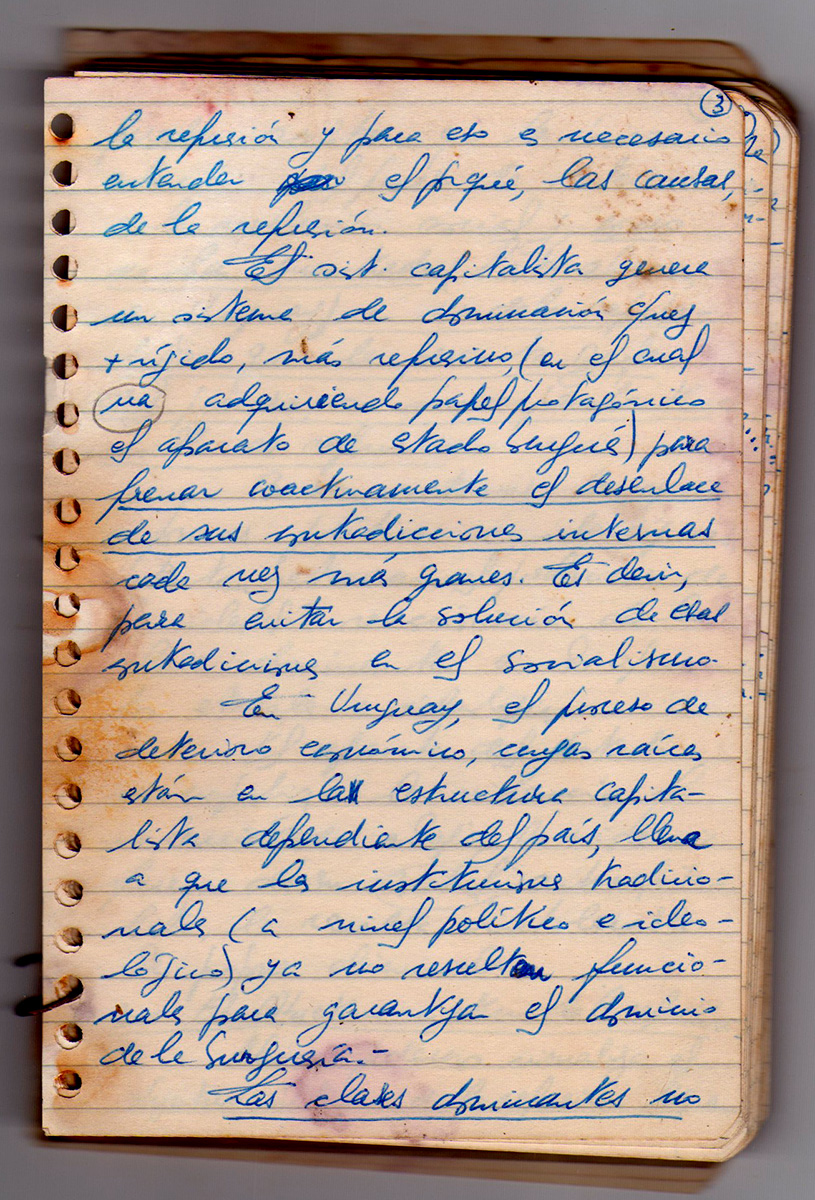 3
la represión y para eso es necesario
entender el porqué, las causas,
de la represión.
El sist. capitalista genera
un sistema de dominación
+ rígido, más represivo, (en el cual
va adquiriendo papel protagónico
el aparato de estado burgués) para
frenar coactivamente el desenlace
de sus contradicciones internas
cada vez más graves. Es decir,
para evitar la solución de esas
contradicciones en el socialismo.
En Uruguay, el proceso de
deterioro económico, cuyas raíces
están en la estructura capita-
lista dependiente del país, lleva
a que las instituciones tradicio-
nales (a nivel político e ideo-
lógico) ya no resulten funcio-
nales para garantizar el dominio
de la burguesía.-
Las clases dominantes no